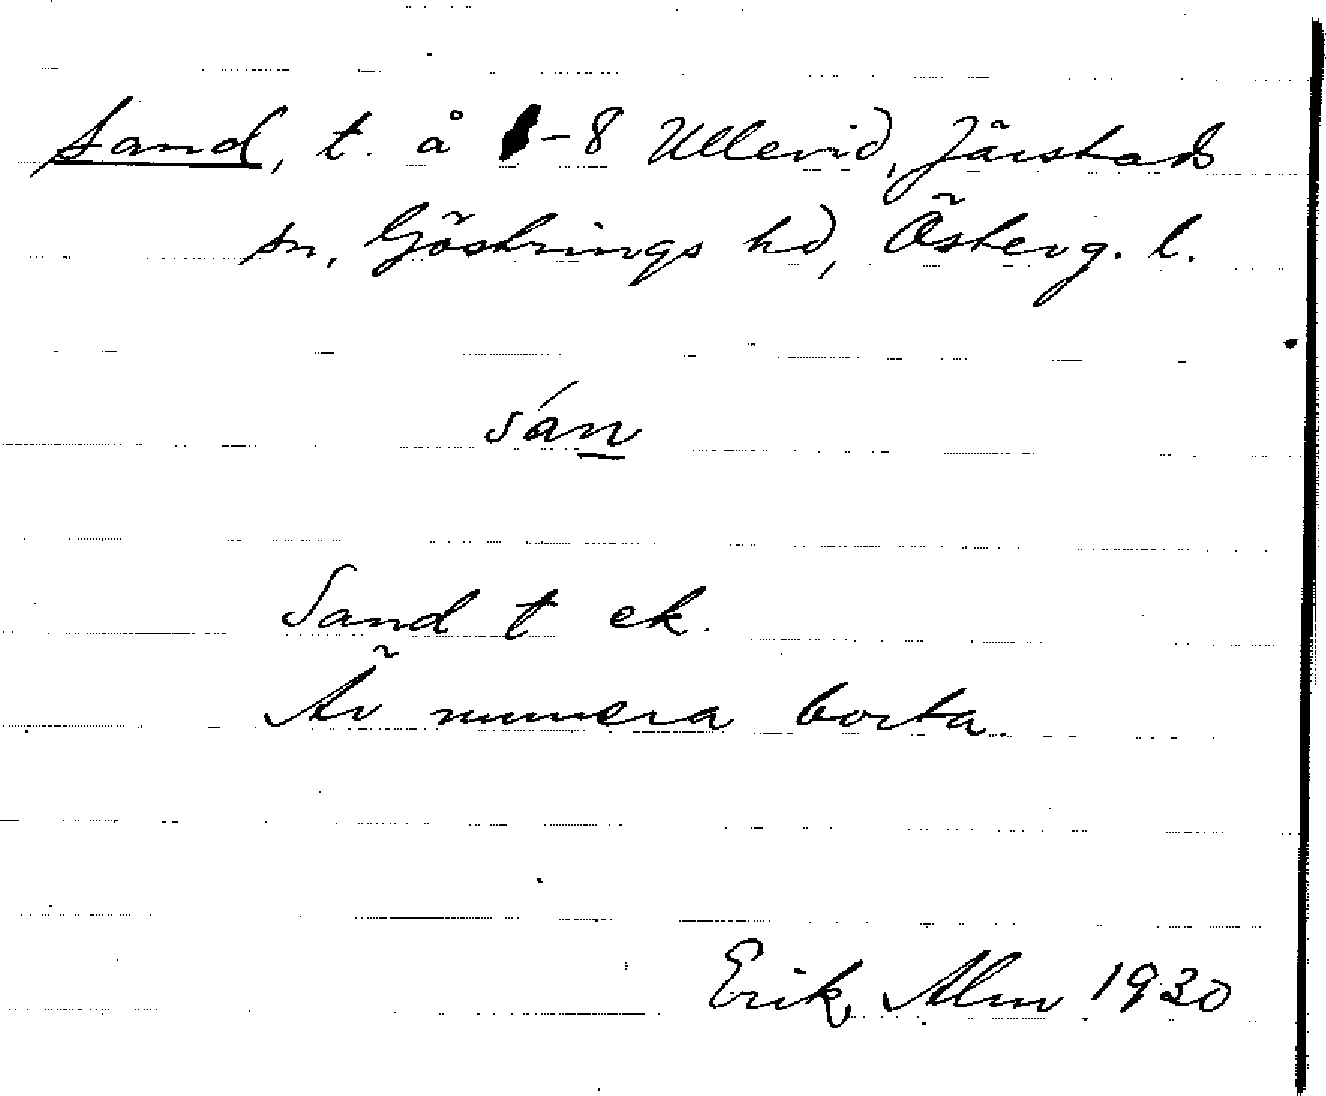 Sand, t. å 1-8 Ullevid, Järstads
sn, Göstrings hd, Österg. l.
sán
Sand t ek.
Är numera borta.
Erik Alm 1930